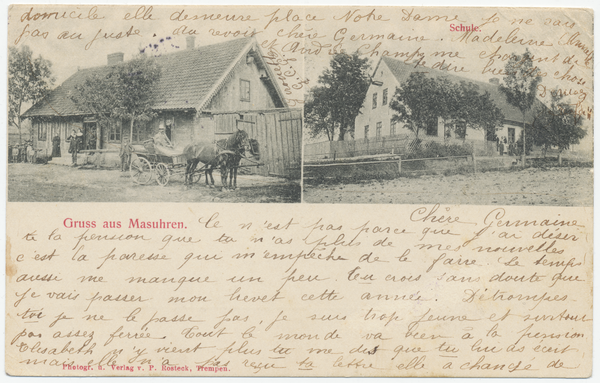 domicile elle demeure place Notre Dame. Je ne sais
pas au juste. Au revoir Chère Germaine. Madeleine
Schule.
Gruss aus Masuhren.
Chère Germaine
Ce n'est pas parce que j'ai déser
té la pension que tu n'as plus de mes nouvelles
c'est la paresse qui m'empêche de le faire. Le temps
aussi me manque un peu. Tu crois sans doute que
je vais passer mon brevet cette année. Détrompes
toi je ne le passe pas je suis trop jeune et surtout
pas assez ferrée. Tout le monde va bien à la pension
Elisabeth n'y vient plus tu me dis que tu lui as écrit
mais elle n'a pas reçu ta lettre elle a changé de
Photogr. u. Verlag v. P. Rosteck, Trempen.